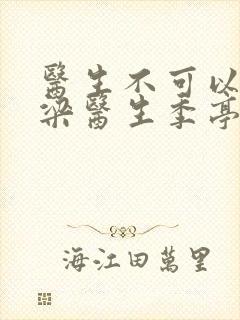 醫生不可以
梁醫生季亭
海江田萬里